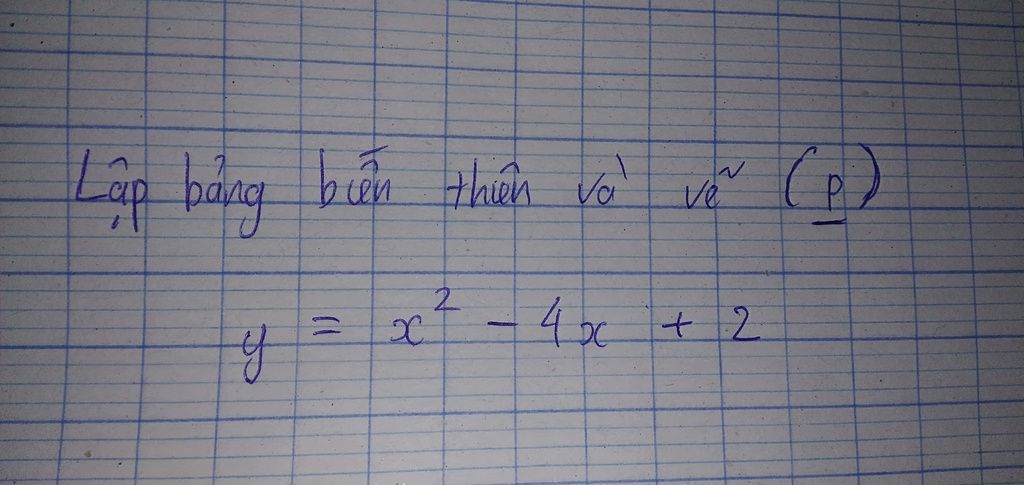 Lập bảng biến thiên và vẽ (p)
y = x² - 4x + 2